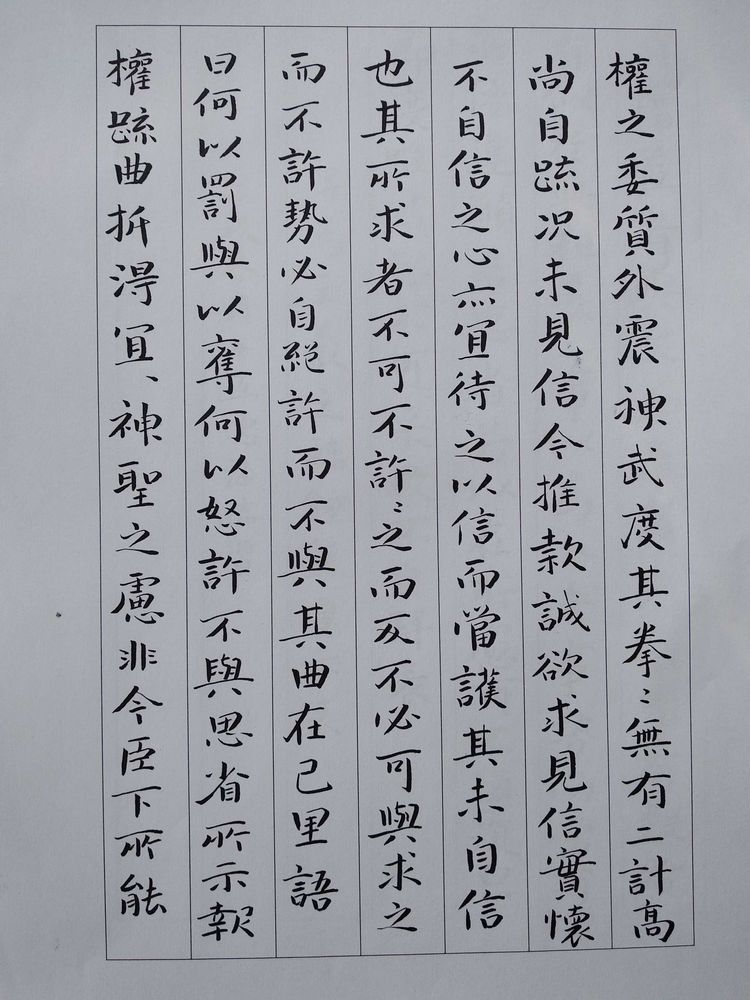 權之委質外震神武度其拳〻無有二計高
尚自疏況未見信今推款誠欲求見信實懷
不自信之心亦宜待之以信而當護其未自信
也其所求者不可不許〻之而反不必可與求之
而不許勢必自絕許而不與其曲在己里語
曰何以罰與以奪何以怒許不與思省所示報
權疏曲折得宜、神聖之慮非今臣下所能